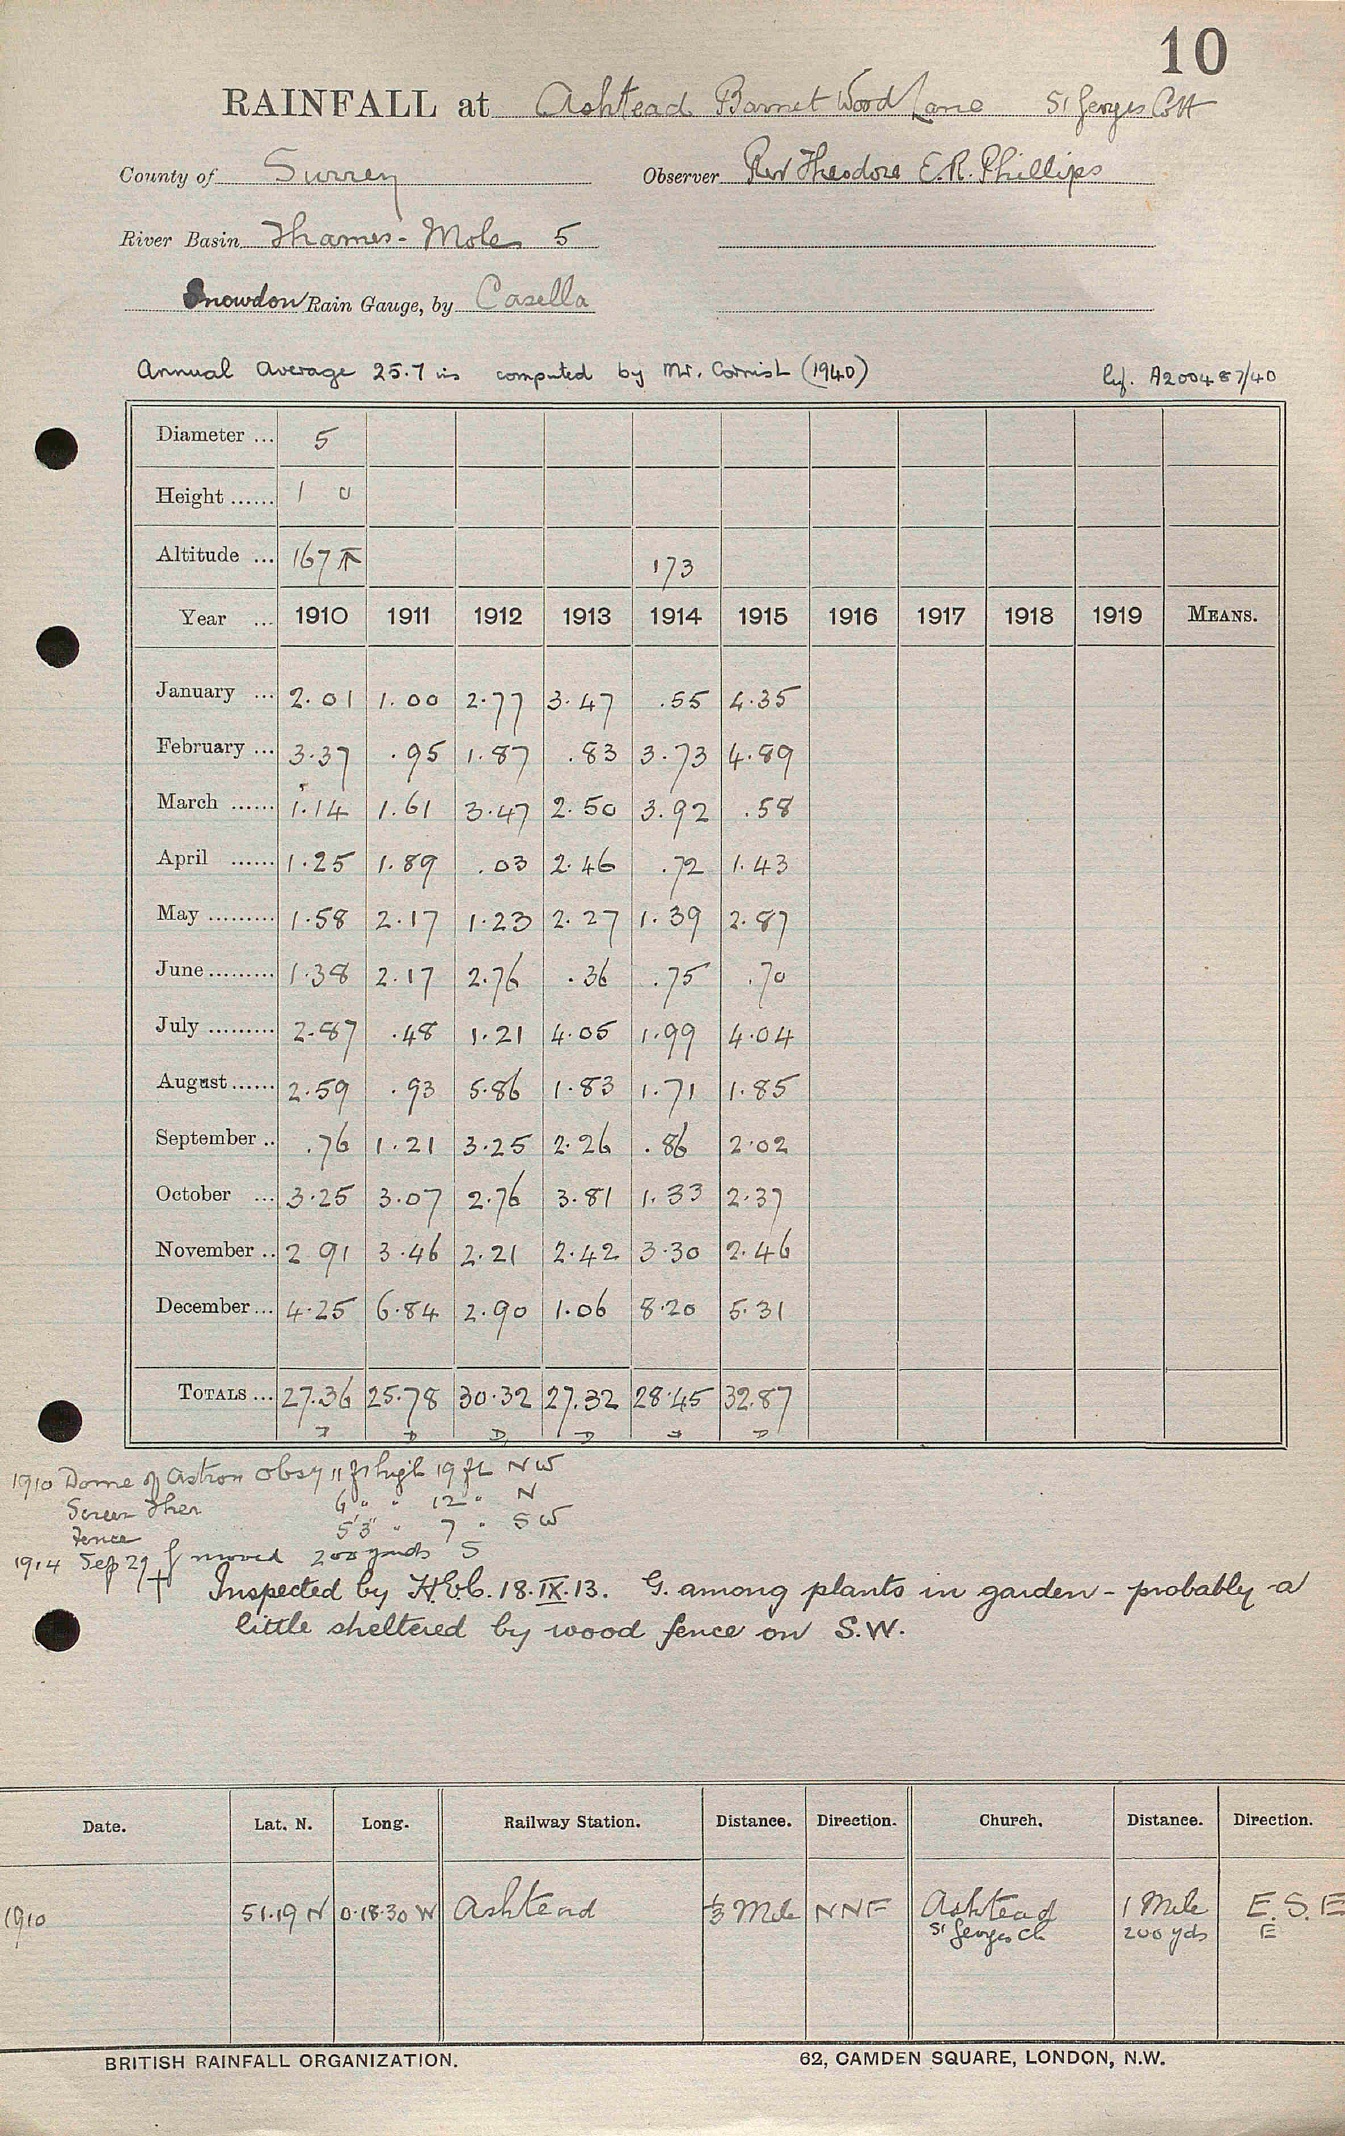 10
RAINFALL at Ashtead Barnet Wood Lane St Georges Cott
County of Surrey Observer Rev Theodore E.R. Phillips
River Basin Thames - Mole 5
Snowdon Rain Gauge, by Casella
Annual Average 25.7 ins computed by Mr. Cornish (1940) Ref. A200487/40
Diameter ... 5
Height ...... 1 0
Altitude ... 167 173
Year ... 1910 1911 1912 1913 1914 1915 1916 1917 1918 1919 MEANS.
January ... 2.01 1.00 2.77 3.47 .55 4.35
February ... 3.37 .95 1.87 .83 3.73 4.89
March ...... 1.14 1.61 3.47 2.50 3.92 .58
April ...... 1.25 1.89 .03 2.46 .72 1.43
May ......... 1.58 2.17 1.23 2.27 1.39 2.87
June ......... 1.38 2.17 2.76 .36 .75 .70
July ......... 2.87 .48 1.21 4.05 1.99 4.04
August ...... 2.59 .93 5.86 1.83 1.71 1.85
September .. .76 1.21 3.25 2.26 .86 2.02
October ... 3.25 3.07 2.76 3.81 1.33 2.37
November .. 2 91 3.46 2.21 2.42 3.30 2.46
December ... 4.25 6.84 2.90 1.06 8.20 5.31
TOTALS ... 27.36 25.78 30.32 27.32 28.45 32.87
1910 Dome of Astron Obsy 11 ft high 19 ft NW
Screen Ther 6 " " 12 " N
Fence 5'3" " 7 " SW
1914 Sep 29 moved 200 yards S
† Inspected by 18.IX.13. G. among plants in garden - probably a
little sheltered by wood fence on S.W.
Date. Lat. N. Long. Railway Station. Distance. Direction. Church. Distance. Direction.
1910 51.19 N 0.18.30 W Ashtead 1/3 Mile NNE Ashtead 1 Mile E.S.E
St Georges Ch 200 yds E
BRITISH RAINFALL ORGANIZATION. 62, CAMDEN SQUARE, LONDON, N.W.